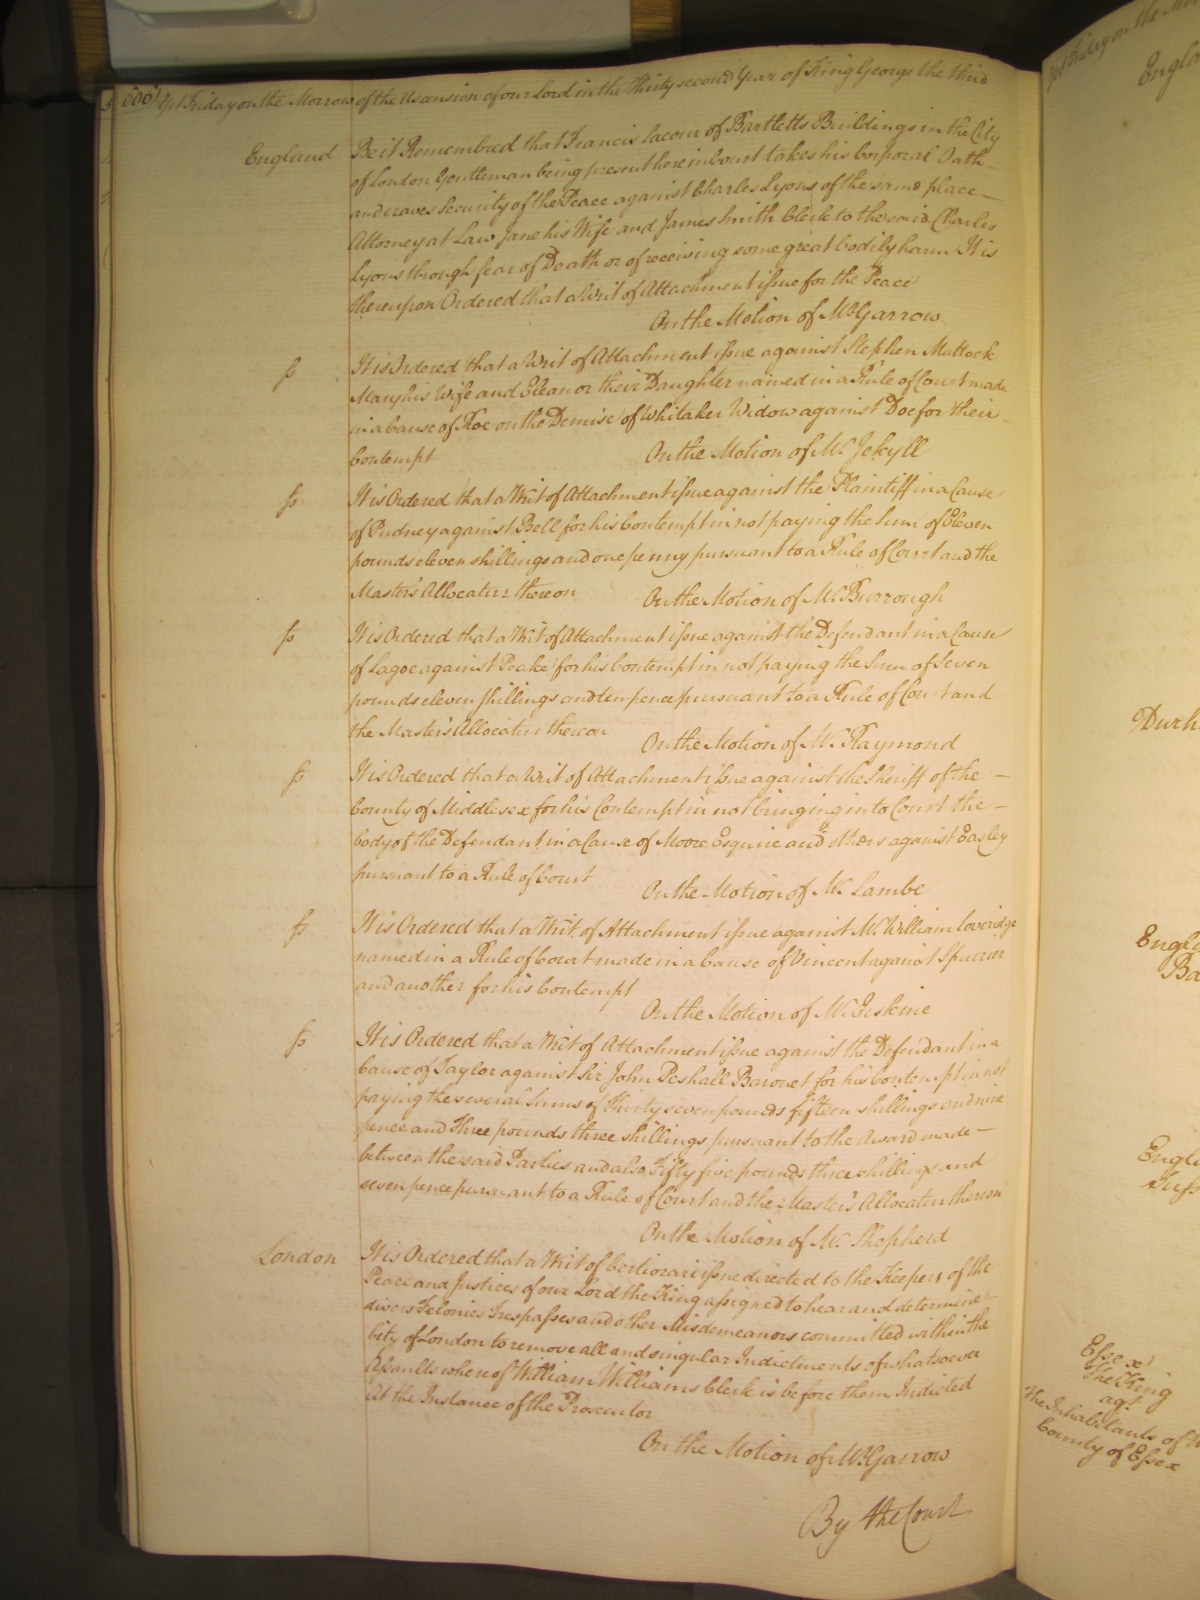 Yet Friday on the Morrow of the Ascension of our Lord in the Thirty second Year of King George the third
England
Be it Remembred that Francis Lacour of Bartletts Buildings in the City
of London Gentleman being present here in Court takes his Corporal Oath
and craves Security of the Peace against Charles Lyons of the same place
Attorney at Law Jane his Wife and James Smith Clerk to the said Charles
Lyons through fear of Death or of receiving some great bodily harm It is
thereupon Ordered that a Writ of Attachment issue for the Peace
On the Motion of Mr. Garrow
It is Ordered that a Writ of Attachment issue against Stephen Mattock
Mary his Wife and Eleanor their Daughter named in a Rule of Court made
in a Cause of Roe on the Demise of Whitaker Widow against Doe for their
Contempt
On the Motion of Mr. Jekyll
It is Ordered that a Writ of Attachment issue against the Plaintiff in a Cause
of Pudney against Bell for his Contempt in not paying the Sum of Eleven
pounds eleven shillings and one penny pursuant to a Rule of Court and the
Master's Allocatur thereon
On the Motion of Mr. Burrough
It is Ordered that a Writ of Attachment issue against the Defendant in a Cause
of Lagoe against Peake for his Contempt in not paying the Sum of Seven
pounds eleven shillings and ten pence pursuant to a Rule of Court and
the Master's Allocatur thereon
On the Motion of Mr. Raymond
It is Ordered that a Writ of Attachment issue against the Sheriff of the
County of Middlesex for his Contempt in not bringing into Court the
body of the Defendant in a Cause of Moore Esquire and others against Easley
pursuant to a Rule of Court
On the Motion of Mr. Lambe
It is Ordered that a Writ of Attachment issue against Mr. William Loveridge
named in a Rule of Court made in a Cause of Vincent against Spurrier
and another for his Contempt
On the Motion of Mr. Erskine
It is Ordered that a Writ of Attachment issue against the Defendant in a
Cause of Taylor against Sir John Peshall Baronet for his Contempt in not
paying the several Sums of Thirty seven pounds fifteen shillings and nine
pence and Three pounds three shillings pursuant to the Award made
between the said Parties and also Fifty five pounds three shillings and
seven pence pursuant to a Rule of Court and the Master's Allocatur thereon
On the Motion of Mr. Shepherd
London
It is Ordered that a Writ of Certiorari issue directed to the Keepers of the
Peace and Justices of our Lord the King assigned to hear and determine
divers Felonies Trespasses and other Misdemeanors committed within the
City of London to remove all and singular Indictments of whatsoever
Assaults whereof William Williams Clerk is before them Indicted
At the Instance of the Prosecutor
On the Motion of Mr. Garrow
By the Court
Durh
Engla
Essex
The King
agt.
the Inhabitants of
County of Essex